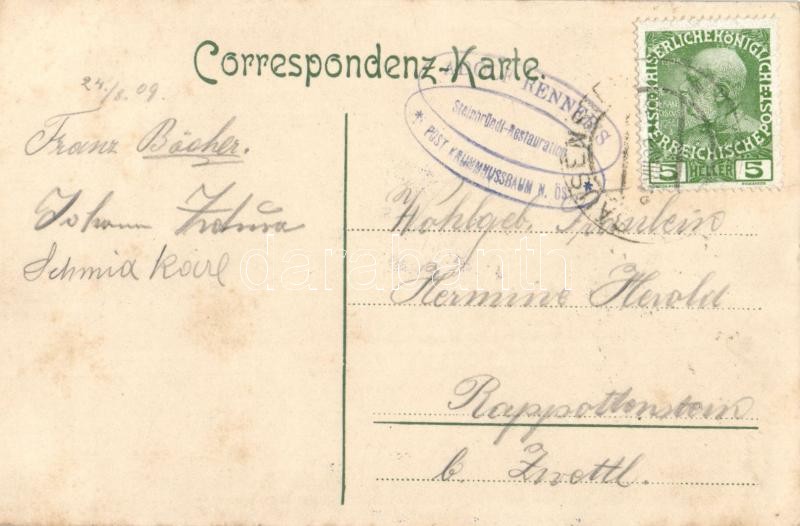 Correspondenz-Karte.
24./8. 09
RENNERS
Steinbründl-Restauration
* POST KRUMMNUSSBAUM N. ÖST. *
KAISERLICHEKÖNIGLICHE
ÖSTERREICHISCHE POST
5 HELLER 5
Franz Böcher.
Johann
Schmid Karl
Wohlgeb. Fräulein
Hermine Herold
Rappottenstein
b. Zwettl.
darabanth